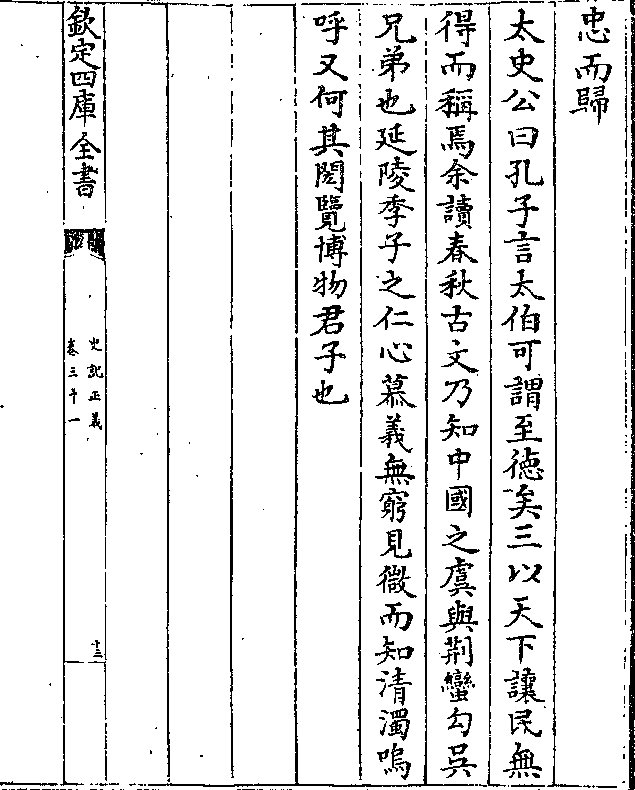 忠而歸
太史公曰孔子言太伯可謂至徳矣三以天下讓民無
得而稱焉余讀春秋古文乃知中國之虞與荆蠻勾吳
兄弟也延陵季子之仁心慕義無窮見微而知清濁嗚
呼又何其閎覽博物君子也
欽定四庫全書
史記正義
卷三十一
十三